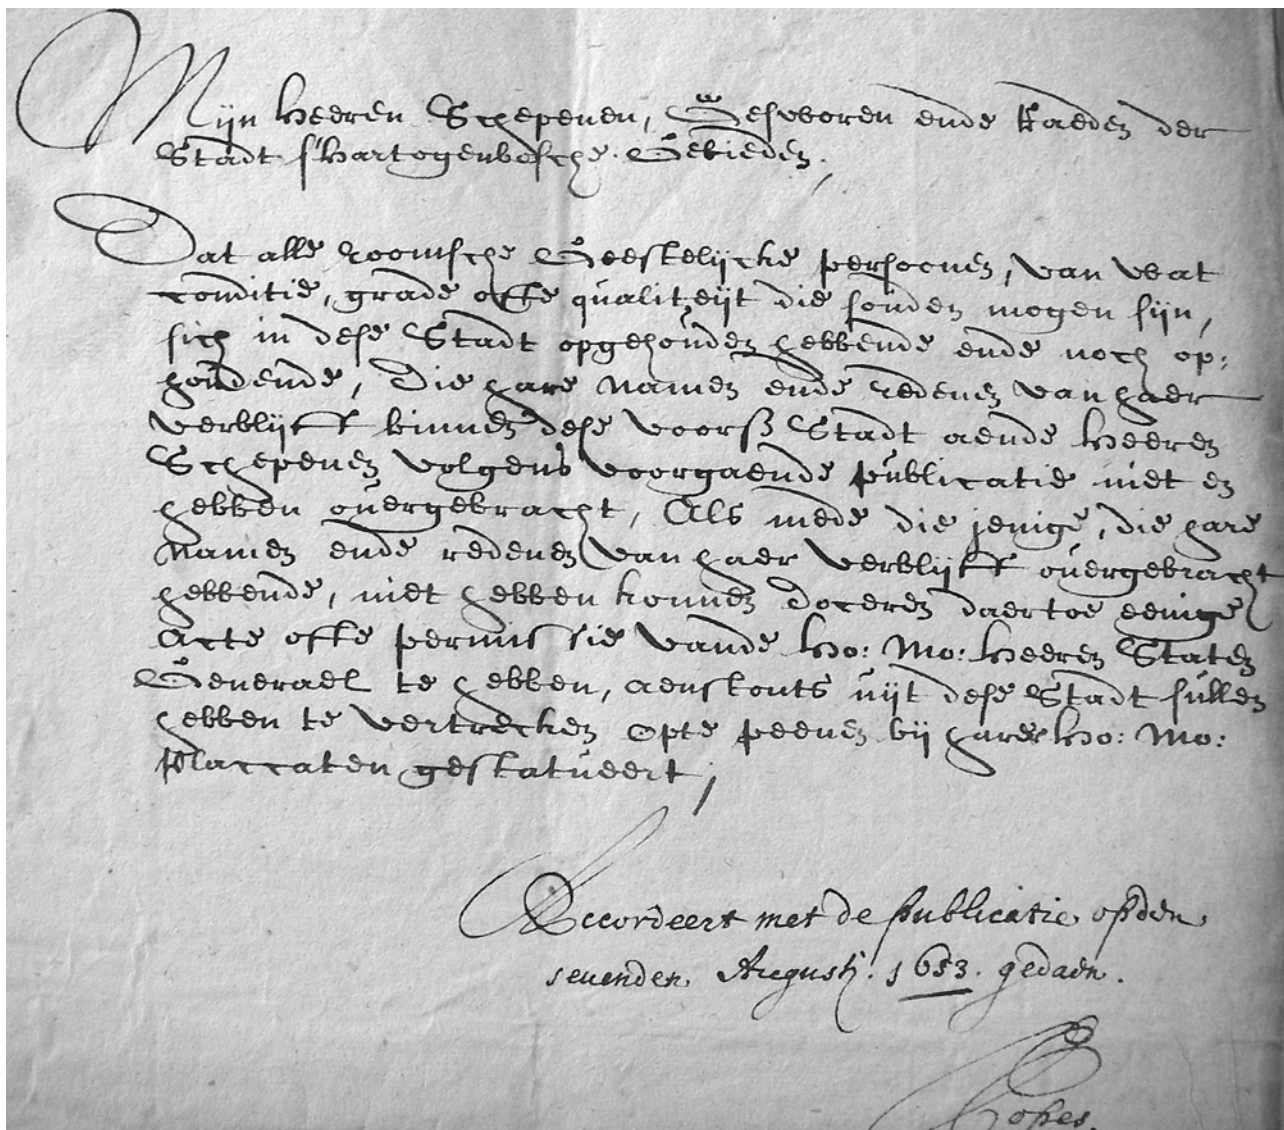 Mijn Heeren Schepenen, Geswooren ende Raeden der
Stadt sHartogenbossche. Gebieden,
Dat alle roomsche Geestelijcke persoonen, van wat
conditie, grade ofte qualiteijt die souden mogen sijn,
sich in dese Stadt opgehouden hebbende ende noch op:
houdende, die hare namen ende redenen van haer
verblijff binnen dese voorß Stadt aende Heeren
Schepenen volgens voorgaende publicatie niet en
hebben ouergebracht, Als mede die jenige, die hare
namen ende redenen van haer verblijff ouergebracht
hebbende, niet hebben konnen doceren daertoe eenige
Acte ofte permissie vande Ho: Mo: Heeren Staten
Generael te hebben, aenstonts uijt dese Stadt sullen
hebben te vertrecken opte peenen bij harer Ho: Mo:
placcaten gestatueert;
Accordeert met de publicatie opden
seuenden Augustj. 1653. gedaen.
Copes.